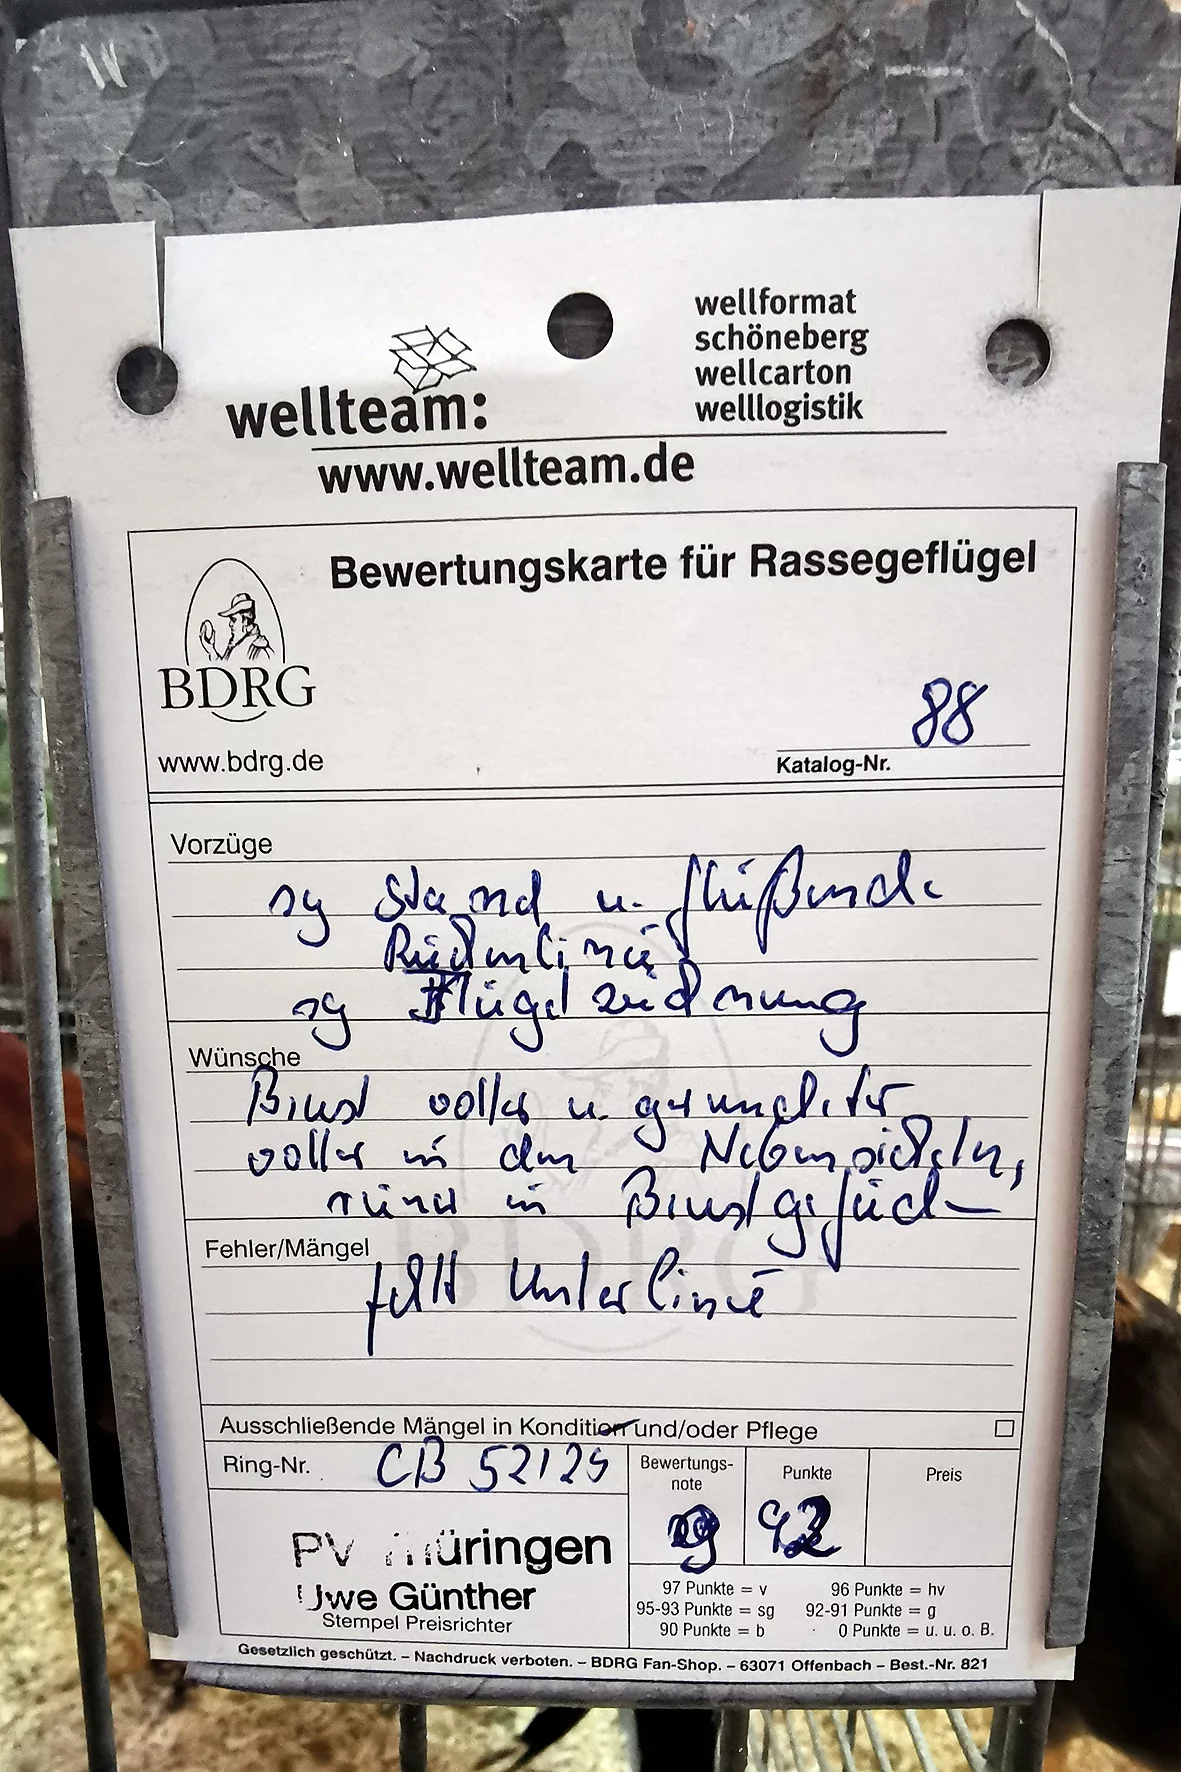 wellteam:
wellformat
schöneberg
wellcarton
welllogistik
www.wellteam.de
Bewertungskarte für Rassegeflügel
BDRG
www.bdrg.de
88
Katalog-Nr.
Vorzüge
sg Stand u. fließende
Rückenlinie
sg Flügelzeichnung
Wünsche
Brust voller u. gerundeter
voller in den Nebensicheln,
reiner in Brustgefied
Fehler/Mängel
fehlt Unterlinie
Ausschließende Mängel in Kondition und/oder Pflege
Ring-Nr. CB 52125
Bewertungs-
note
Punkte
Preis
g 92
PV Thüringen
Uwe Günther
Stempel Preisrichter
97 Punkte = v 96 Punkte = hv
95-93 Punkte = sg 92-91 Punkte = g
90 Punkte = b 0 Punkte = u. u. o. B.
Gesetzlich geschützt. – Nachdruck verboten. – BDRG Fan-Shop. – 63071 Offenbach – Best.-Nr. 821